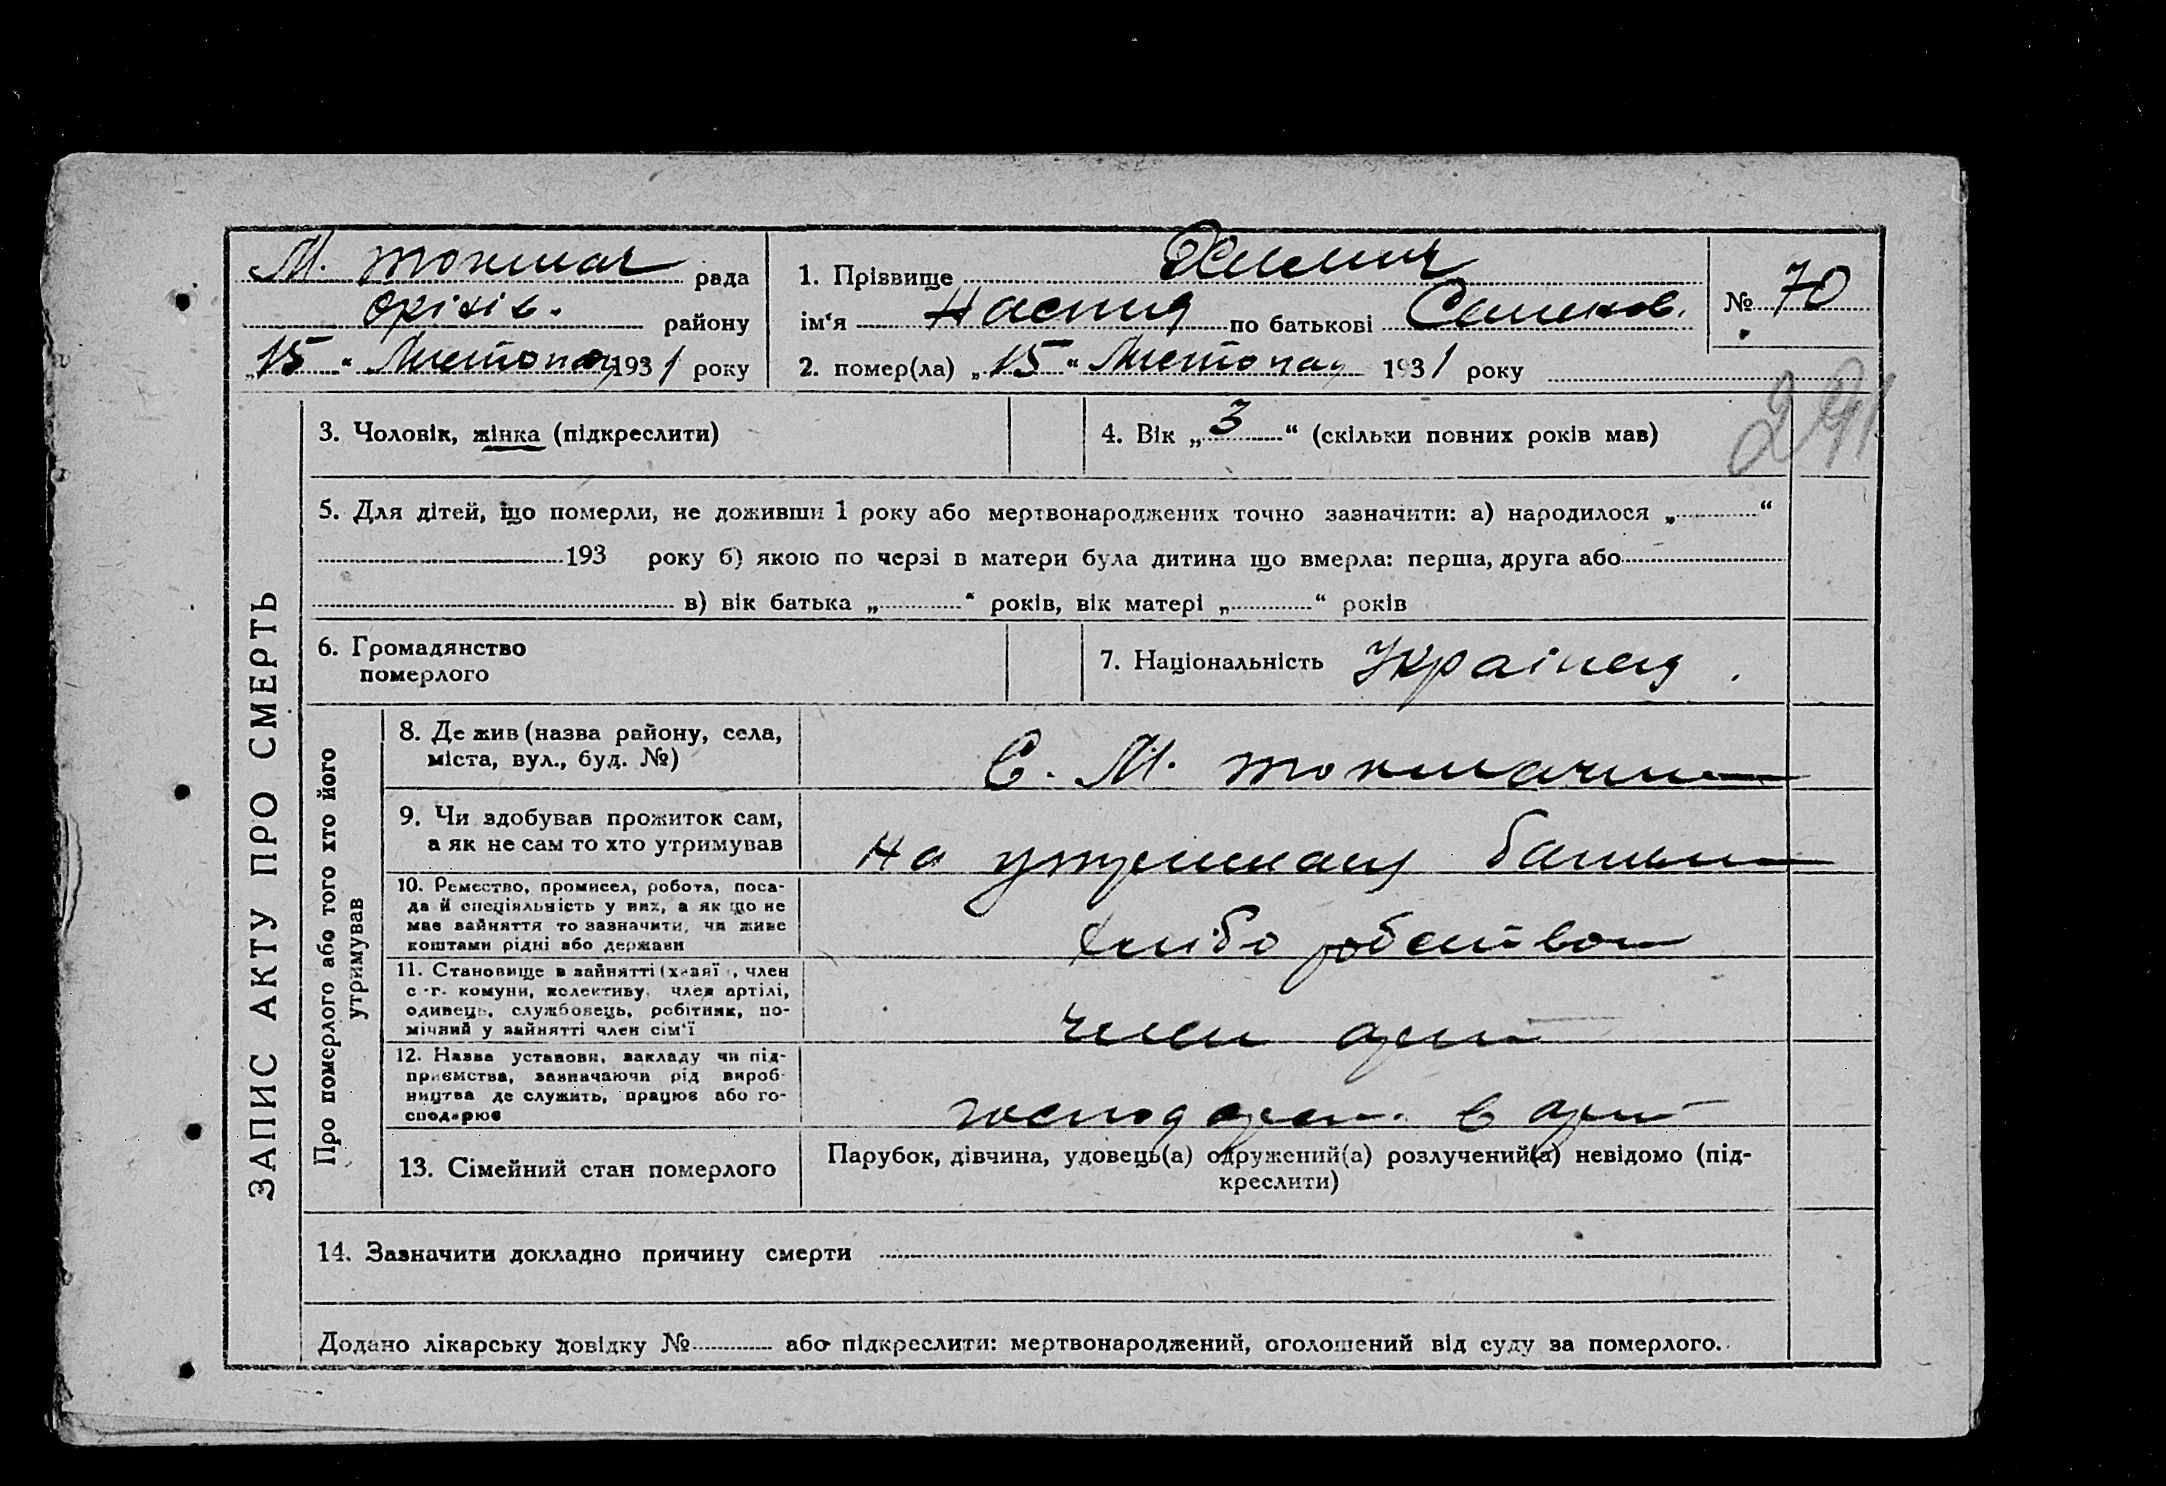 М. токмач рада
Оріхів. району
„15“ Листопад 1931 року
1. Прізвище
ім‘я Настя по батькові Семенов.
2. помер(ла) „15“ Листопад 1931 року
№ 70
291
ЗАПИС АКТУ ПРО СМЕРТЬ
3. Чоловік, жінка (підкреслити)
4. Вік „3“ (скільки повних років мав)
5. Для дітей, що померли, не доживши 1 року або мертвонароджених точно зазначити: а) народилося „ “
193 року б) якою по черзі в матери була дитина що вмерла: перша, друга або
в) вік батька „ “ років, вік матері „ “ років
6. Громадянство
померлого
7. Національність Україн
Про померлого або того хто його
утримував
8. Де жив (назва району, села,
міста, вул., буд. №)
С. М. токмачка
9. Чи здобував прожиток сам,
а як не сам то хто утримував
на утриманні батька
10. Ремество, промисел, робота, поса-
да й спеціяльність у них, а як що не
має зайняття то зазначити, чи живе
коштами рідні або держави
хлібо робством
11. Становище в зайнятті (хазяї , член
с.-г. комуни, колективу, член артілі,
одинець, службовець, робітник, по-
мічний у зайнятті член сім‘ї
член арт
12. Назва установи, закладу чи під-
приємства, зазначаючи рід вироб-
ництва де служить, працює або го-
сподарює
господар. в арт
13. Сімейний стан померлого
Парубок, дівчина, удовець(а) одружений(а) розлучений(а) невідомо (під-
креслити)
14. Зазначити докладно причину смерти
Додано лікарську довідку № або підкреслити: мертвонароджений, оголошений від суду за померлого.